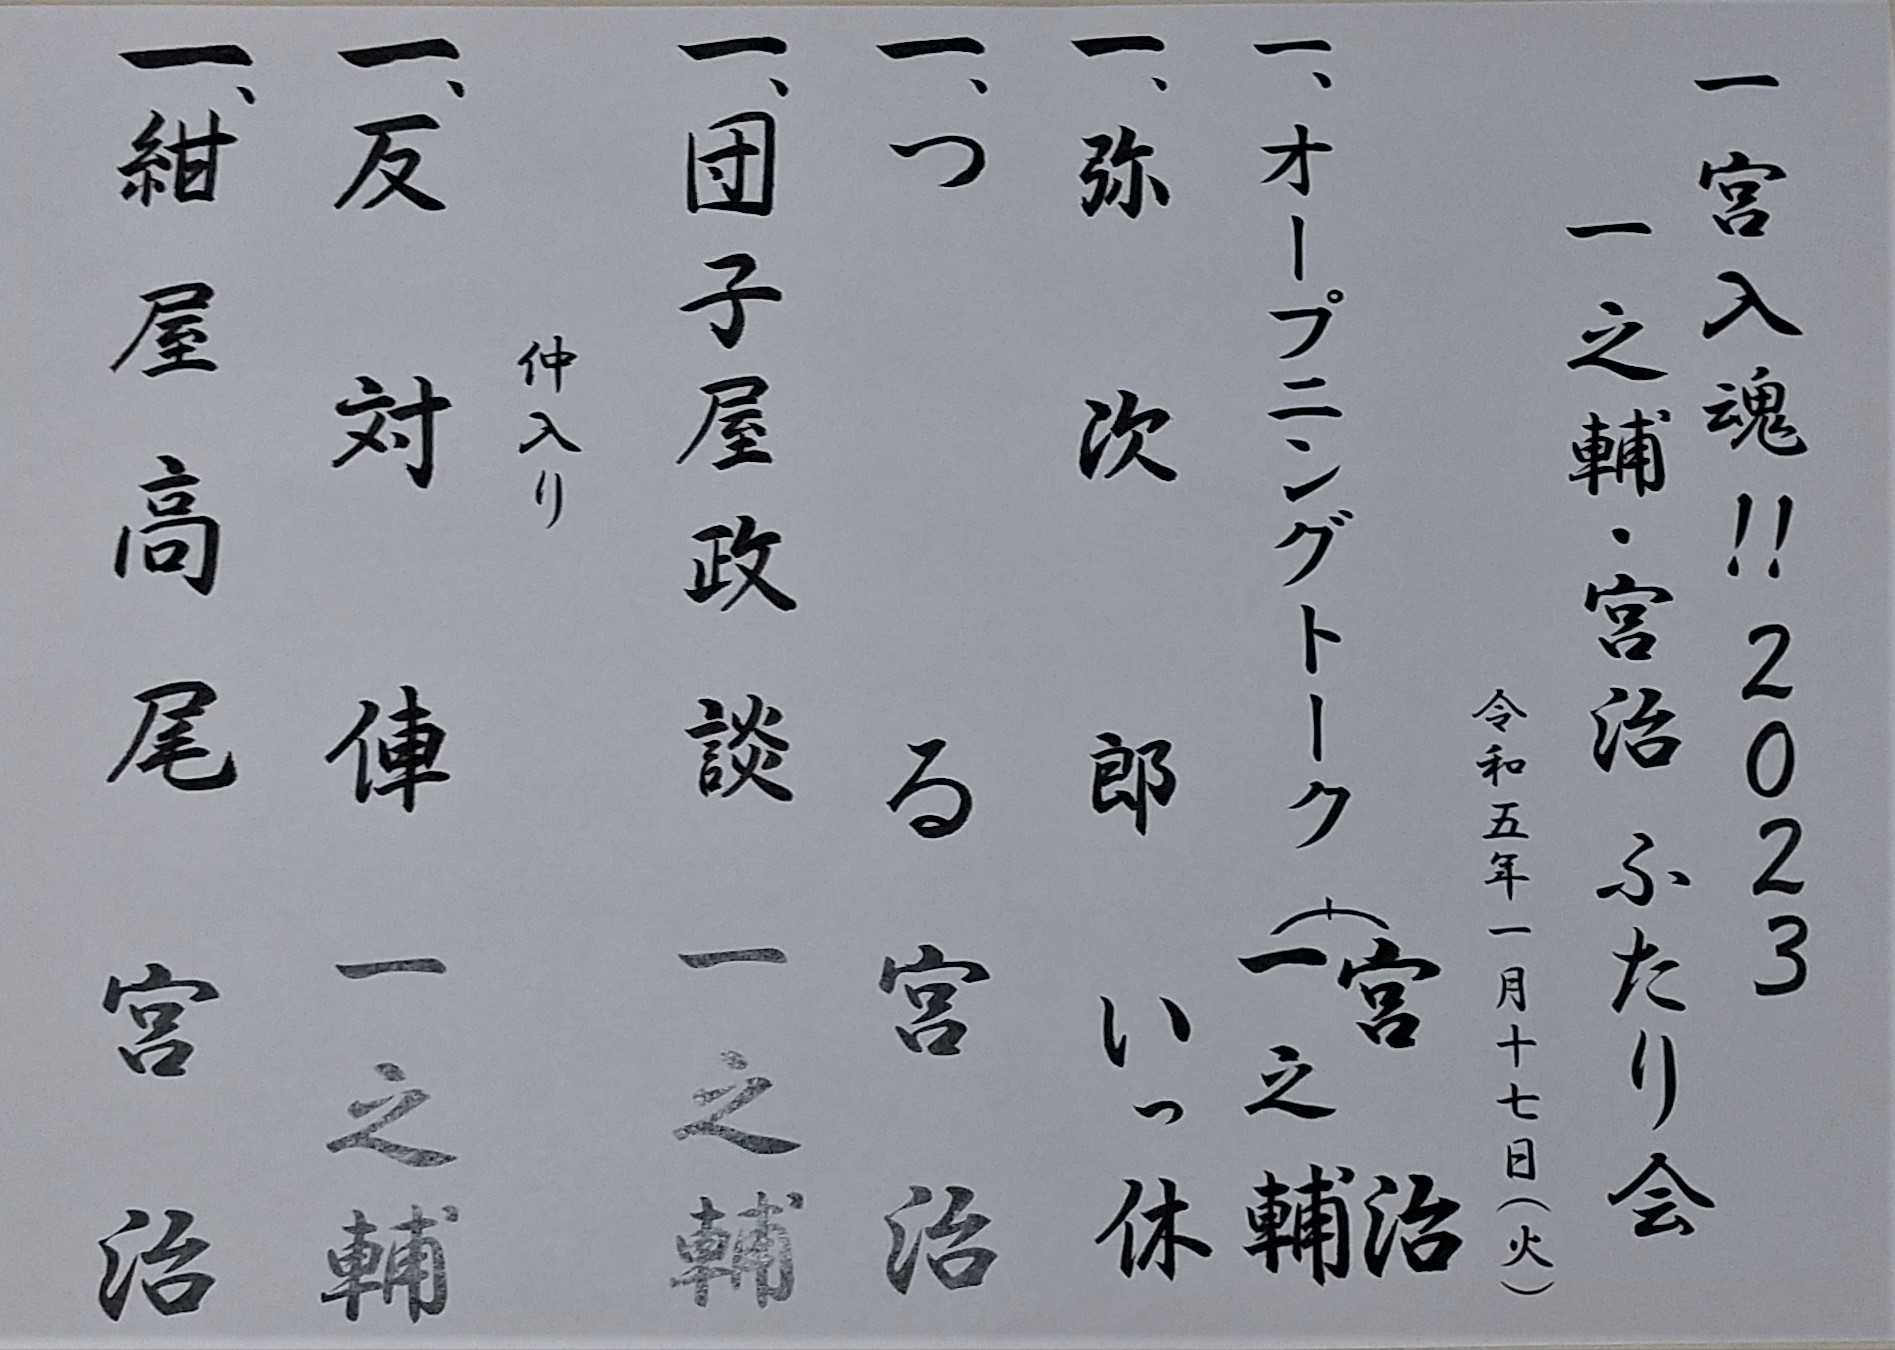 一宮入魂!!2023
一之輔・宮治 ふたり会
令和五年一月十七日(火)
一、オープニングトーク 宮治
一之輔
一、弥次郎 いっ休
一、つる 宮治
一、団子屋政談 一之輔
仲入り
一、反対俥 一之輔
一、紺屋高尾 宮治